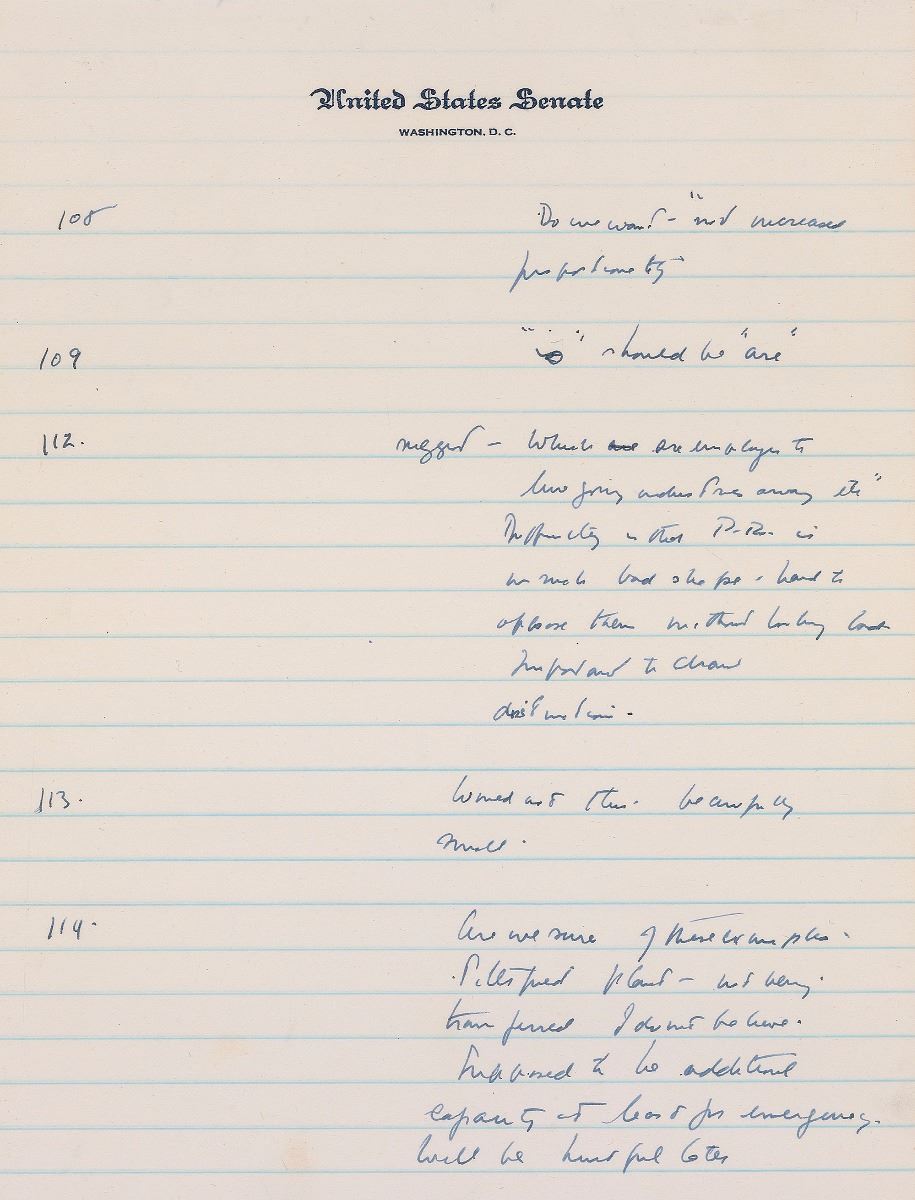 United States Senate
WASHINGTON, D. C.
108 Do we want - "not increased
proportionately
109 "is" should be "are"
112. suggest - Which are are employed to
lure going industries away etc"
Difficulty is that P.R. is
in such bad shape - hard to
oppose them without looking bad
Important to draw
distinction.
113. Would not this be awfully
small.
114. Are we sure of these examples.
Pittsfield plant - not being
transferred I do not believe.
Supposed to be additional
capacity at least for emergency.
Will be hurtful later